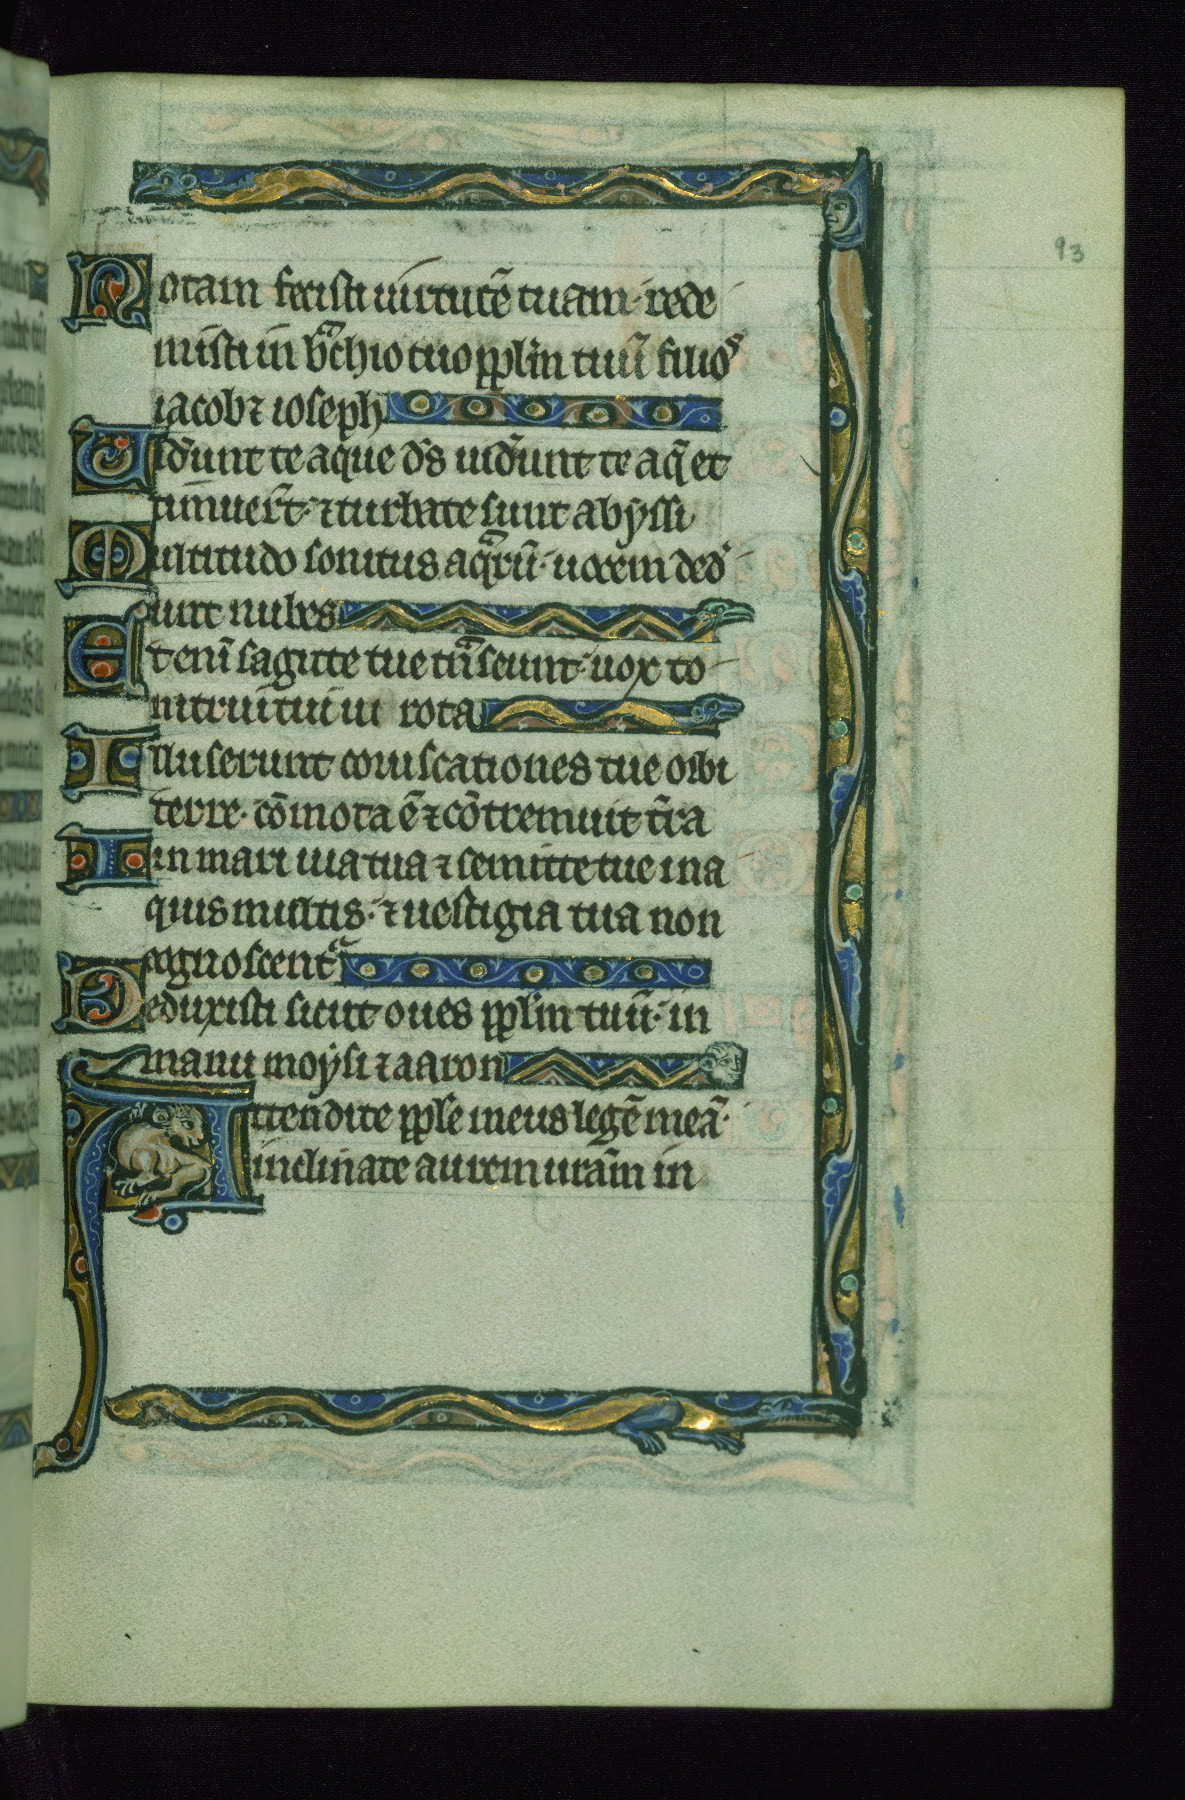 93
Notam fecisti uirtutē tuam· rede
misti in bᵃchio tuo pplm̄ tuū filioˢ
iacob ⁊ ioseph
Uid̄unt te aque d̄s uid̄unt te aq̄ et
timuer̄t· ⁊ turbate sunt abyssi
Multitudo sonitus aqᵃrū· uocem ded̾
unt nubes
Eteni̅ sagitte tue tᵃnseunt· uox to
nitrui tui in rota
Illuserunt coruscationes tue orbi
terre· cōmota ē ⁊ cōtremuit t̄ra
In mari uia tua ⁊ semitte tue in a
quis multis· ⁊ uestigia tua non
cognoscentᵃ
Deduxisti sicut oues pplm̄ tuū· in
manu moysi ⁊ aaron
Attendite pple meus legē meā·
inclinate aurem ura̅m in